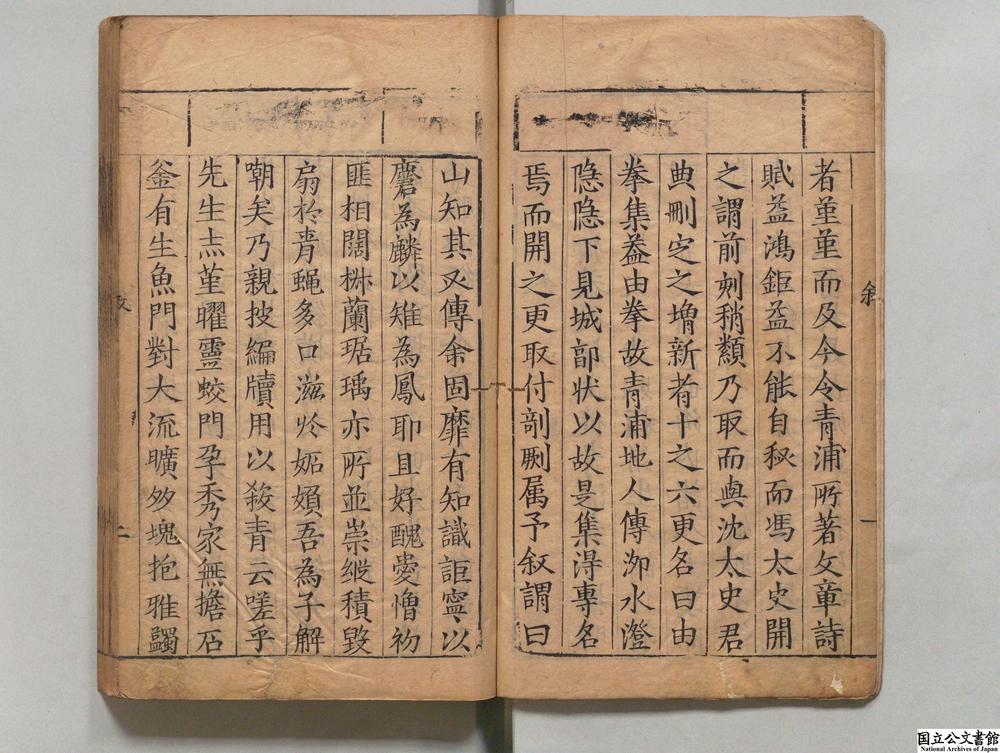 者堇堇而及今令青浦所著文章詩
賦益鴻鉅益不能自秘而馮太史開
之謂前刻稍纇乃取而與沈太史君
典刪定之増新者十之六更名曰由
拳集葢由拳故青浦地人傳泖水澄
隐隐下見城郭状以故是集得專名
焉而開之更取付剞劂属予叙謂曰
叙
一
山知其又傳余固靡有知識詎寧以
麏為麟以雉為鳳耶且好醜愛憎初
匪相闊椒蘭琚瑀亦所並崇纵積毀
扇於青蝇多口滋於妬嬪吾為子解
嘲矣乃親披編牘用以殺青云嗟乎
先生志堇曜靈蛟門孕秀家無擔石
釜有生魚門對大流曠多塊抱雅蠲
叙
二
国立公文書館
National Archives of Japan